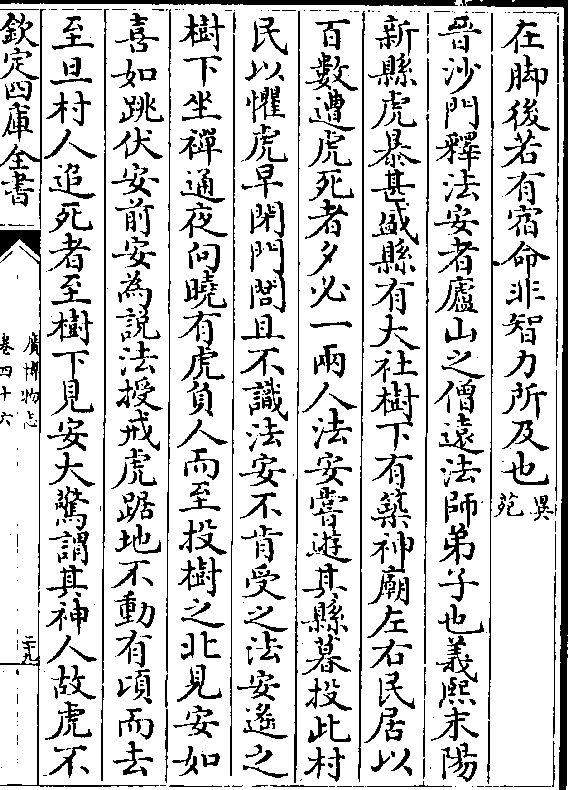 在脚後若有宿命非智力所及也異苑
晉沙門釋法安者廬山之僧遠法師弟子也義熙末陽
新縣虎暴甚盛縣有大社樹下有築神廟左右民居以
百數遭虎死者夕必一兩人法安嘗遊其縣暮投此村
民以懼虎早閉門閭且不識法安不肯受之法安遙之
樹下坐禪通夜向曉有虎負人而至投樹之北見安如
喜如跳伏安前安為説法授戒虎踞地不動有頃而去
至旦村人追死者至樹下見安大驚謂其神人故虎不
欽定四庫全書
廣博物志
卷四十六
二十九